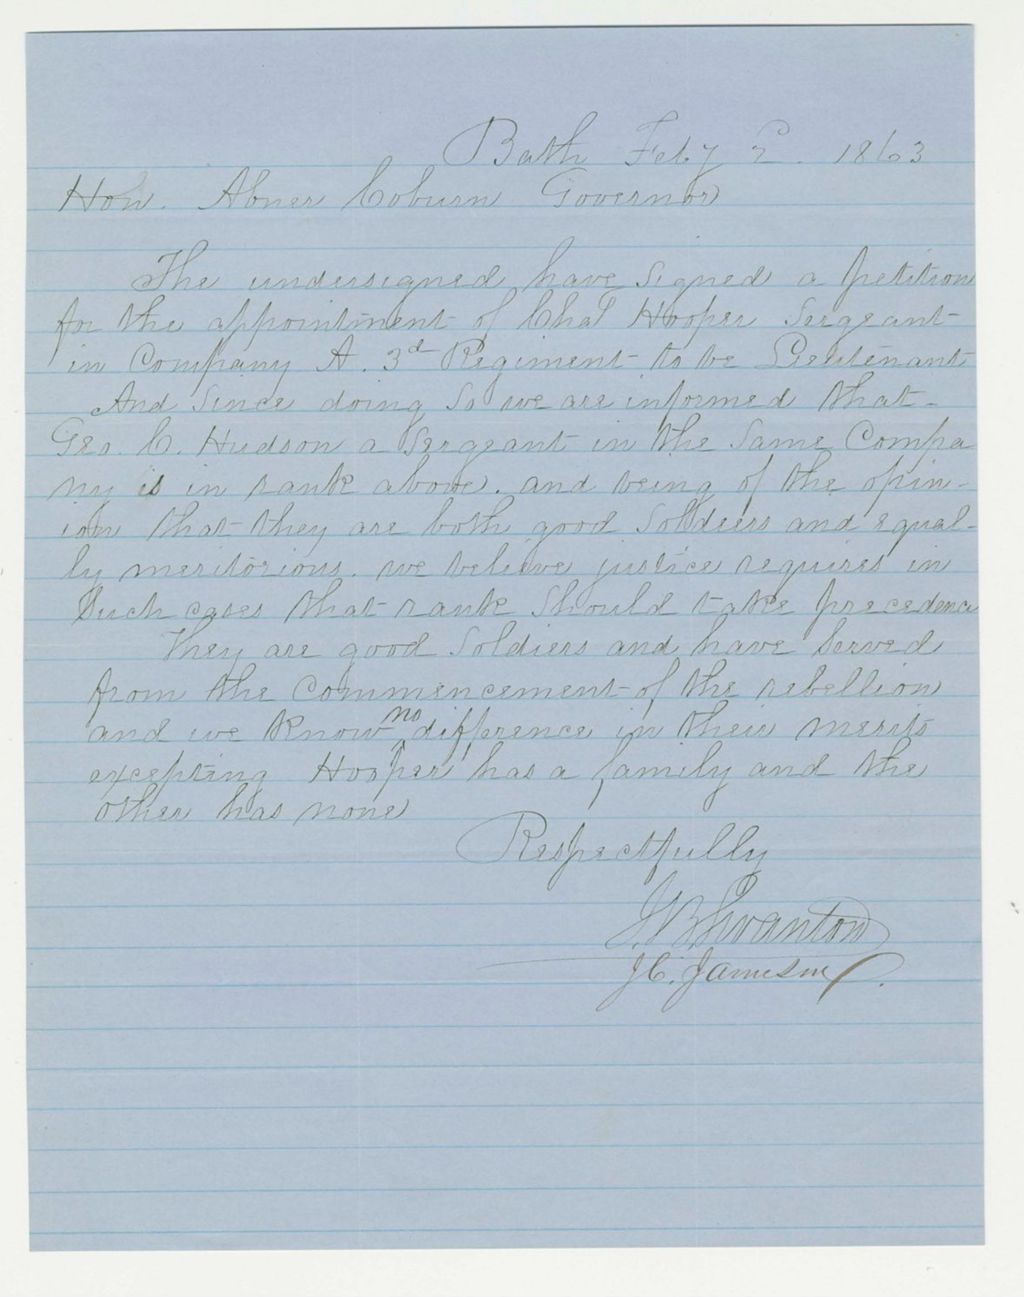 Bath Feby 2. 1863
Hon. Abner Coburn Governor
The undersigned have signed a petition
for the appointment of Chas Hooper Sergeant
in Company A. 3d Regiment to be Lieutenant
And Since doing So we are informed that
Geo. C. Hudson a Sergeant in the Same Compa
ny is in rank above. and being of the opin-
ion that they are both good Soldiers and equal-
ly meritorious. we believe justice requires in
Such cases that rank Should take precedence
They are good Soldiers and have Served
from the Commencement of the rebellion
and we know no difference in their merits
excepting Hooper has a family and the
other has none
Respectfully
J B Swanton
J. C. Jameson